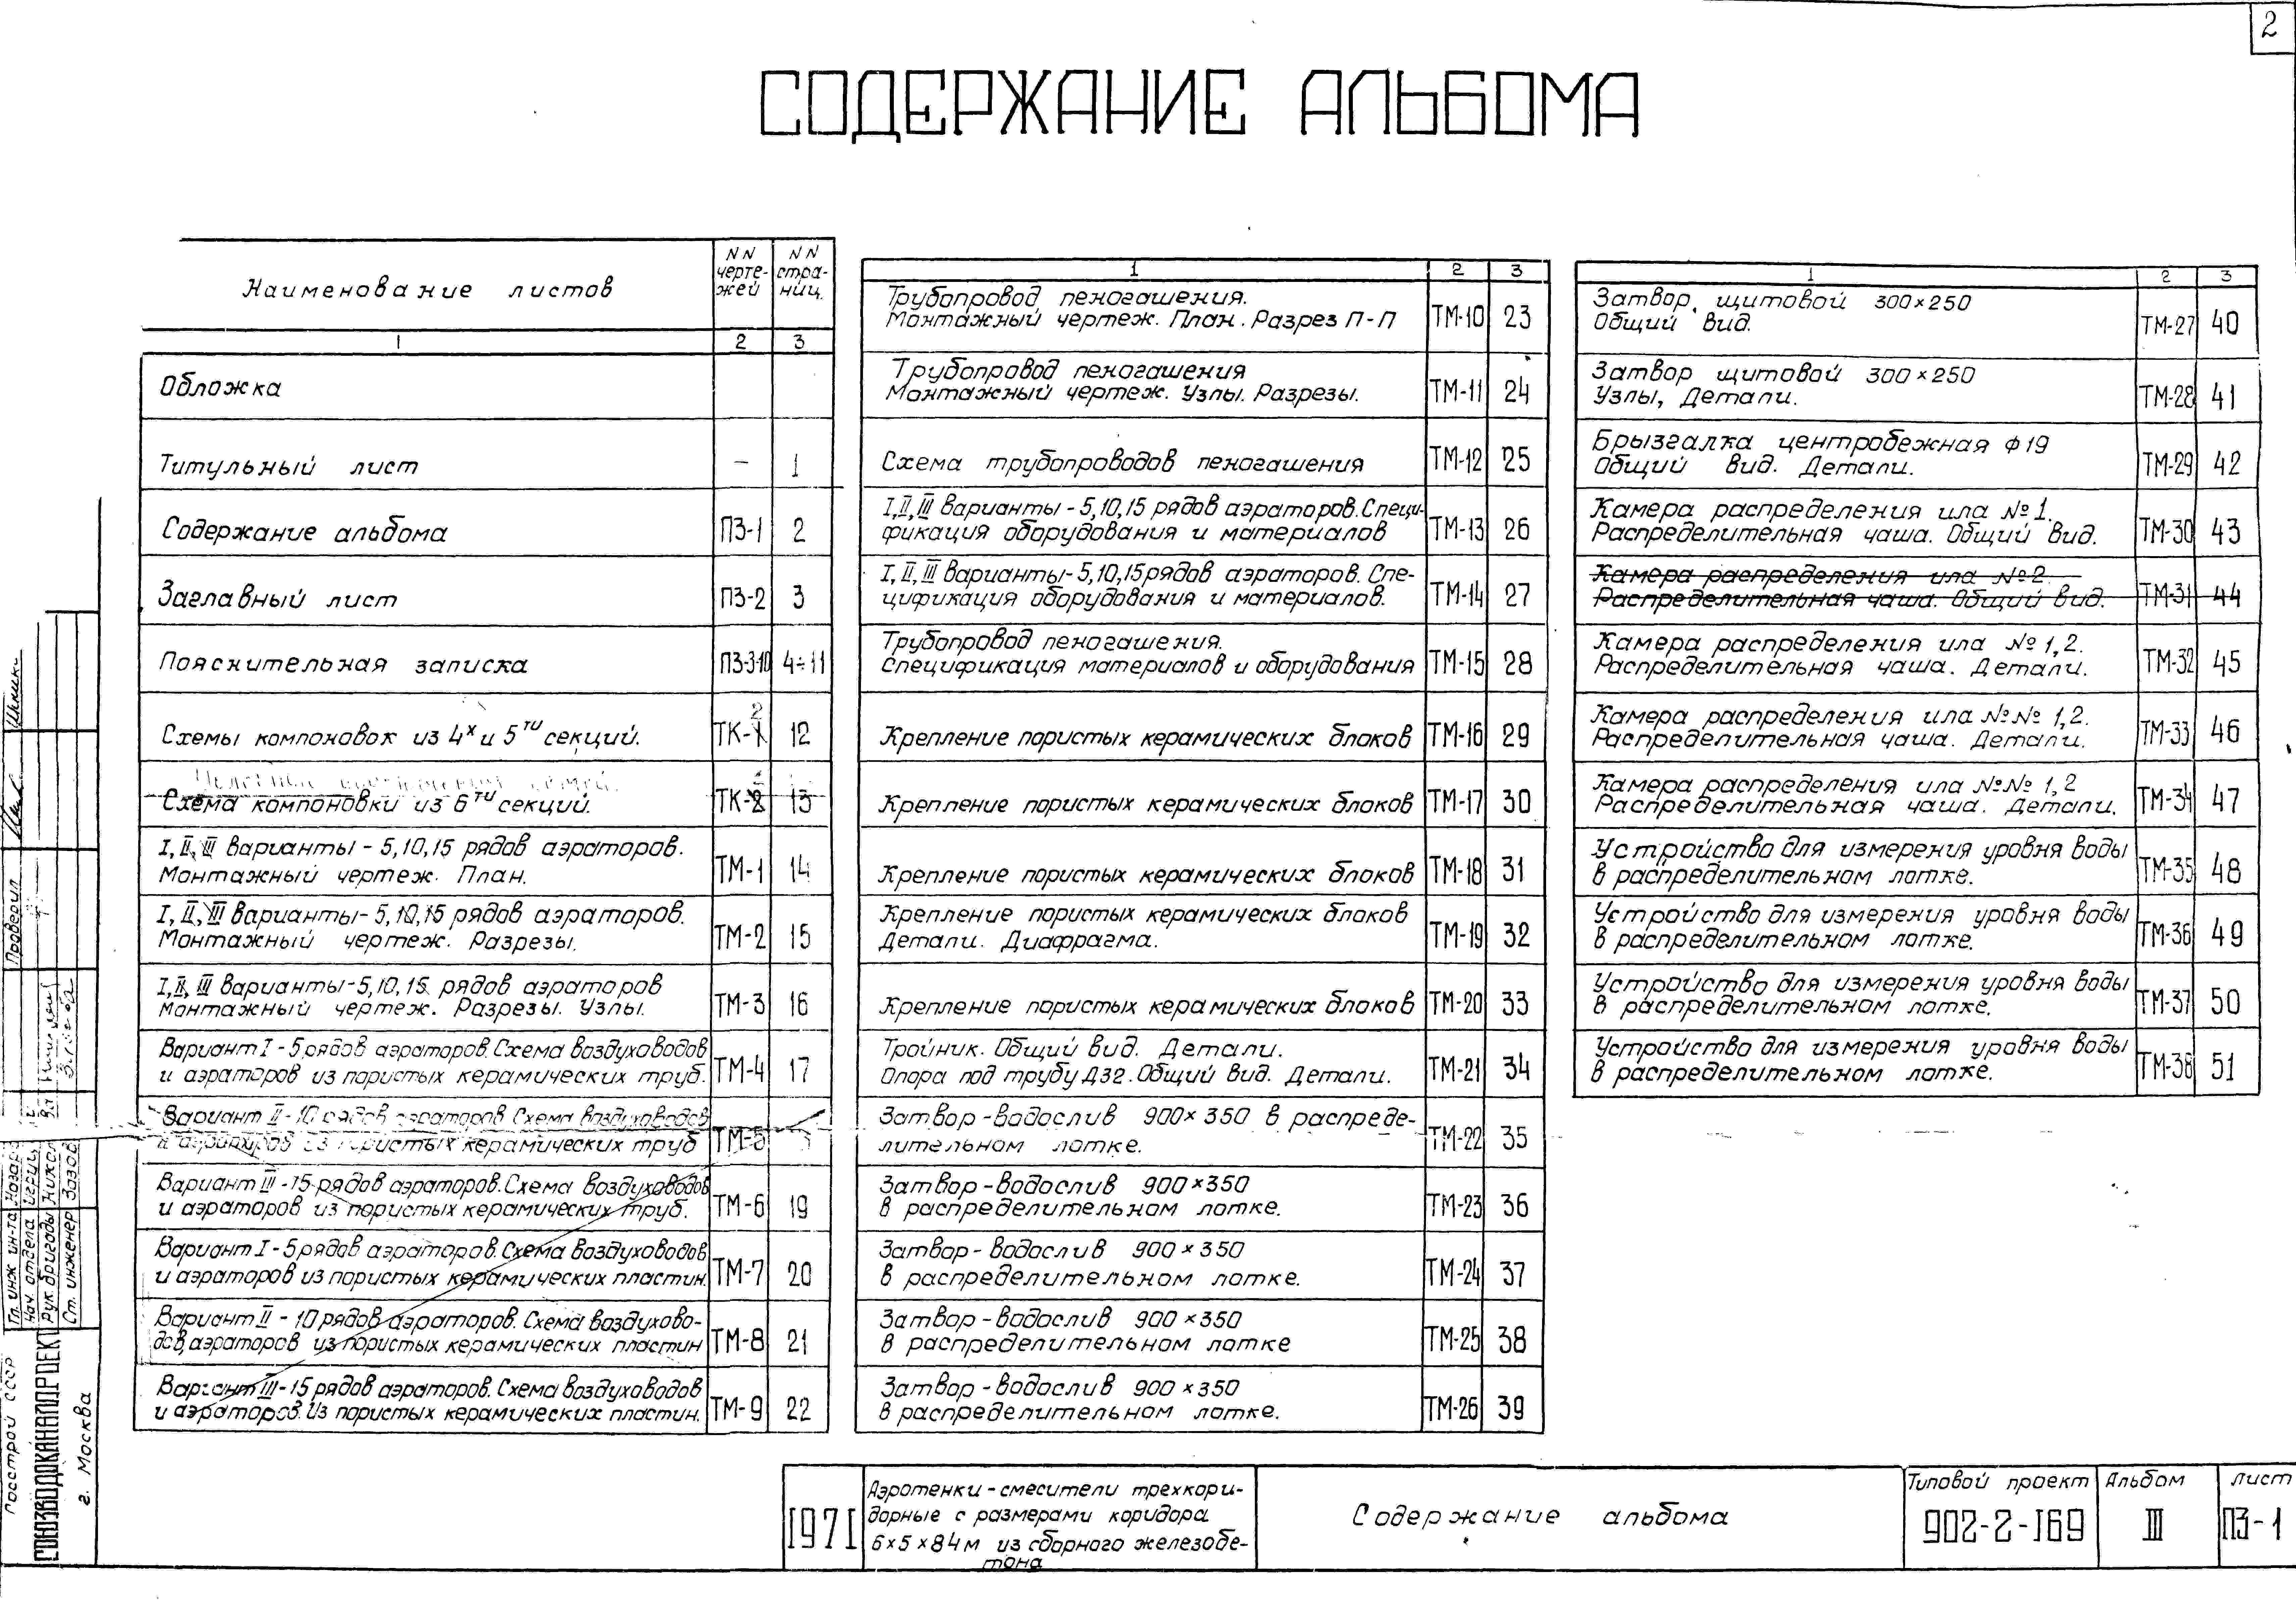 2
СОДЕРЖАНИЕ АЛЬБОМА
Наименование листов
NN чертежей
NN страниц.
1 2 3
Обложка
Титульный лист — 1
Содержание альбома ПЗ-1 2
Заглавный лист ПЗ-2 3
Пояснительная записка ПЗ-3-10 4÷11
Схемы компоновок из 4х и 5ти секций. ТК-1 2 12
Схема компоновки из 6ти секций. ТК-2 13
I, II, III варианты - 5,10,15 рядов аэраторов.
Монтажный чертеж. План. ТМ-1 14
I, II, III варианты - 5,10,15 рядов аэраторов.
Монтажный чертеж. Разрезы. ТМ-2 15
I, II, III варианты - 5,10,15 рядов аэраторов
Монтажный чертеж. Разрезы. Узлы. ТМ-3 16
Вариант I - 5 рядов аэраторов. Схема воздуховодов
и аэраторов из пористых керамических труб. ТМ-4 17
Вариант II - 10 рядов аэраторов Схема воздуховодов
и аэраторов из пористых керамических труб ТМ-5
Вариант III - 15 рядов аэраторов. Схема воздуховодов
и аэраторов из пористых керамических труб. ТМ-6 19
Вариант I - 5 рядов аэраторов. Схема воздуховодов
и аэраторов из пористых керамических пластин. ТМ-7 20
Вариант II - 10 рядов аэраторов. Схема воздухово-
дов, аэраторов из пористых керамических пластин ТМ-8 21
Вариант III - 15 рядов аэраторов. Схема воздуховодов
и аэраторов из пористых керамических пластин. ТМ-9 22
1 2 3
Трубопровод пеногашения.
Монтажный чертеж. План. Разрез П-П ТМ-10 23
Трубопровод пеногашения
Монтажный чертеж. Узлы. Разрезы. ТМ-11 24
Схема трубопроводов пеногашения ТМ-12 25
I, II, III варианты - 5,10,15 рядов аэраторов. Специ-
фикация оборудования и материалов ТМ-13 26
I, II, III варианты - 5,10,15 рядов аэраторов. Спе-
цификация оборудования и материалов. ТМ-14 27
Трубопровод пеногашения.
Спецификация материалов и оборудования ТМ-15 28
Крепление пористых керамических блоков ТМ-16 29
Крепление пористых керамических блоков ТМ-17 30
Крепление пористых керамических блоков ТМ-18 31
Крепление пористых керамических блоков
Детали. Диафрагма. ТМ-19 32
Крепление пористых керамических блоков ТМ-20 33
Тройник. Общий вид. Детали.
Опора под трубу Д32. Общий вид. Детали. ТМ-21 34
Затвор-водослив 900×350 в распреде-
лительном лотке. ТМ-22 35
Затвор-водослив 900×350
в распределительном лотке. ТМ-23 36
Затвор-водослив 900×350
в распределительном лотке. ТМ-24 37
Затвор-водослив 900×350
в распределительном лотке ТМ-25 38
Затвор-водослив 900×350
в распределительном лотке. ТМ-26 39
1 2 3
Затвор щитовой 300×250
Общий вид. ТМ-27 40
Затвор щитовой 300×250
Узлы, Детали. ТМ-28 41
Брызгалка центробежная ф19
Общий вид. Детали. ТМ-29 42
Камера распределения ила №1.
Распределительная чаша. Общий вид. ТМ-30 43
Камера распределения ила №2
Распределительная чаша. Общий вид. ТМ-31 44
Камера распределения ила №1,2.
Распределительная чаша. Детали. ТМ-32 45
Камера распределения ила №№ 1,2.
Распределительная чаша. Детали. ТМ-33 46
Камера распределения ила №№ 1,2
Распределительная чаша. Детали. ТМ-34 47
Устройство для измерения уровня воды
в распределительном лотке. ТМ-35 48
Устройство для измерения уровня воды
в распределительном лотке. ТМ-36 49
Устройство для измерения уровня воды
в распределительном лотке. ТМ-37 50
Устройство для измерения уровня воды
в распределительном лотке. ТМ-38 51
Проверил
Гл. инж ин-та
Нач. отдела
Рук. бригады
Ст. инженер
Госстрой СССР
СОЮЗВОДОКАНАЛПРОЕКТ
г. Москва
1971
Аэротенки-смесители трехкори-
дорные с размерами коридора
6×5×84м из сборного железобе-
тона
Содержание альбома
Типовой проект
902-2-169
Альбом
III
Лист
ПЗ-1